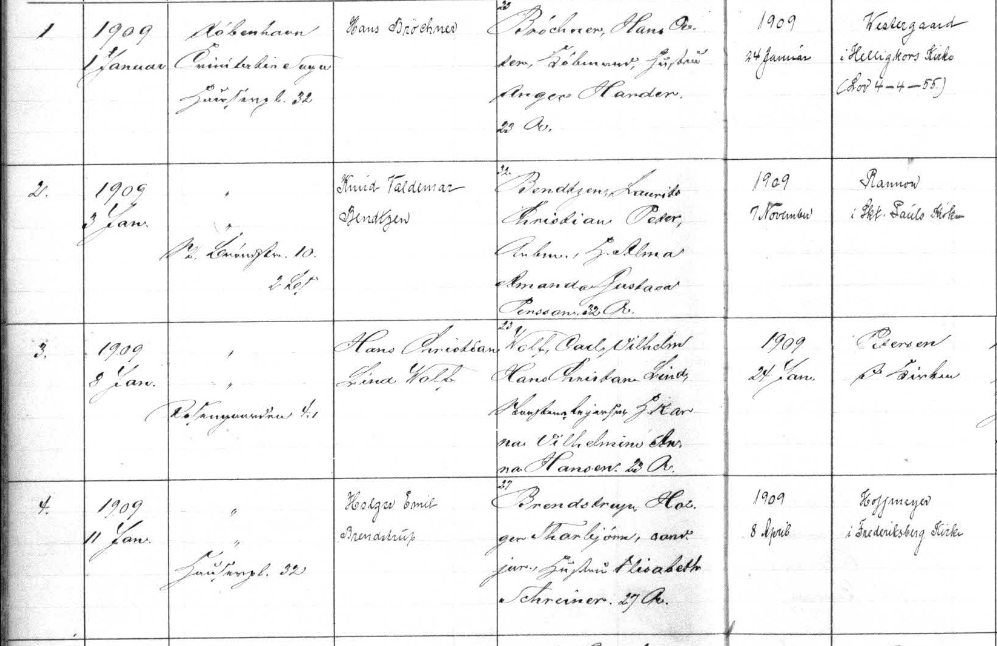 1
1909
1 Januar
København
Trinitatis Sogn
Hauserpl. 32
Hans Bröchner
23
Bröchner, Hans Pe-
ter, Købmand, Hustru
Harder.
23 A.
1909
24 Januar
Westergaard
i Helligkors Kirke
(Lov 4-4-55)
2.
1909
3 Jan.
"
"
10.
2 
Knud Valdemar
Bendtzen
32
Bendtzen, Laurits
Christian Peter,
Arbm., H. Alma
Amanda Gustava
Persson. 32 A.
1909
7 November
i Skt. Pauls Kirke
3.
1909
8 Jan.
"
"
Rosengaarden 4.
Hans Christian
Lind Wolf
23
Wolf, Carl Vilhelm
Hans Christian Lind,
H. Kar
na Vilhelmine An-
na Hansen. 23 A.
1909
24 Jan.
Petersen
i Kirken
4.
1909
11 Jan.
"
"
Hauserpl. 32
Holger Emil
Brendstrup
27
Brendstrup, Hol-
ger Thorbjörn, cand.
jur., Hustru Elisabeth
Schreiner. 27 A.
1909
8 April
Hoffmeyer
i Frederiksberg Kirke